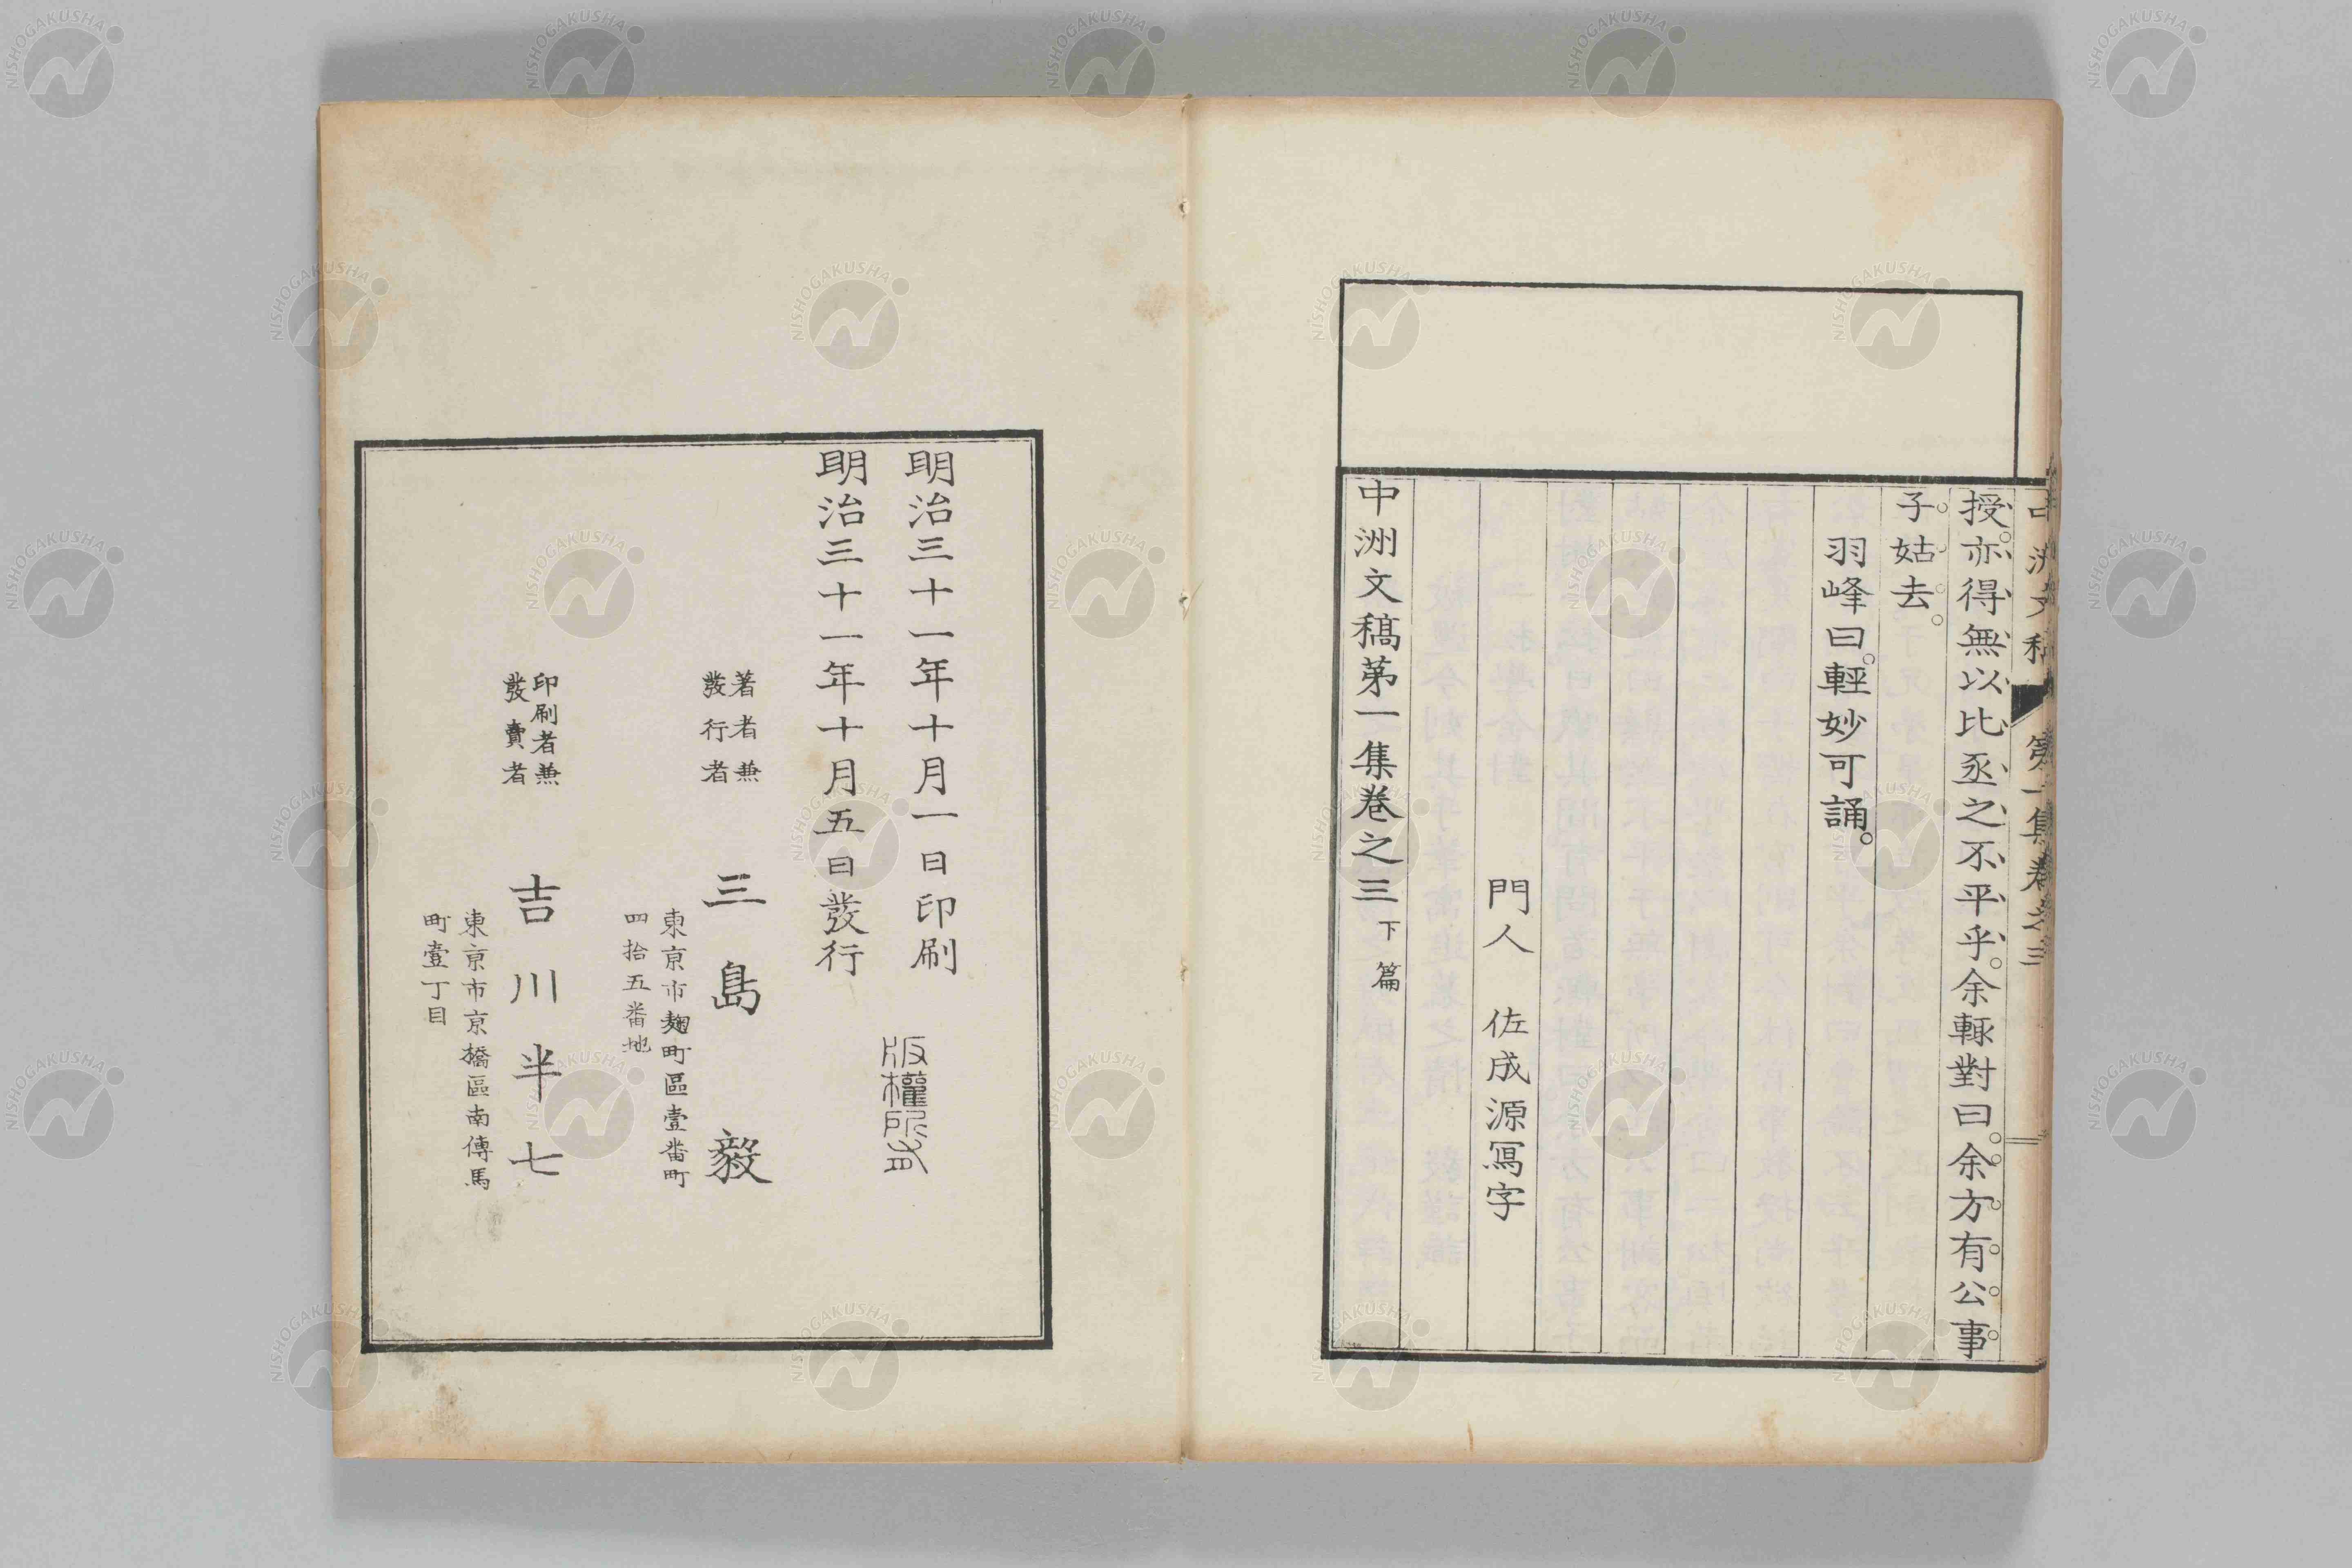 中洲文稿 第一集卷之三
授。亦得無以比丞之不平乎。余輙對曰。余方有公事。
子姑去。
羽峰曰。輕妙可誦。
門人 佐成源寫字
中洲文稿第一集卷之三 下篇
明治三十一年十月一日印刷
明治三十一年十月五日發行
版權所有
著者兼
發行者
三島毅
東京市麹町區壹番町
四拾五番地
印刷者兼
發賣者
吉川半七
東京市京橋區南傳馬
町壹丁目
NISHOGAKUSHA